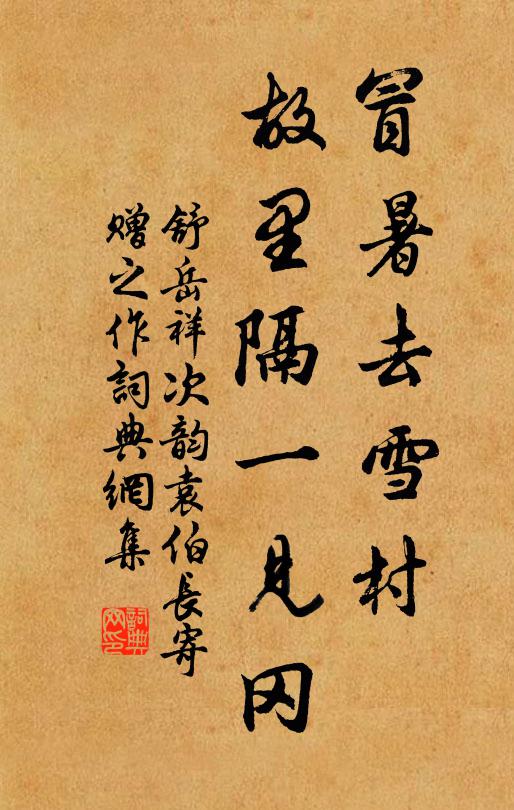 冒暑去雪村
故里隔一見冈
舒岳祥次韵袁伯長寄
贈之作詞典網集
詞典
网印